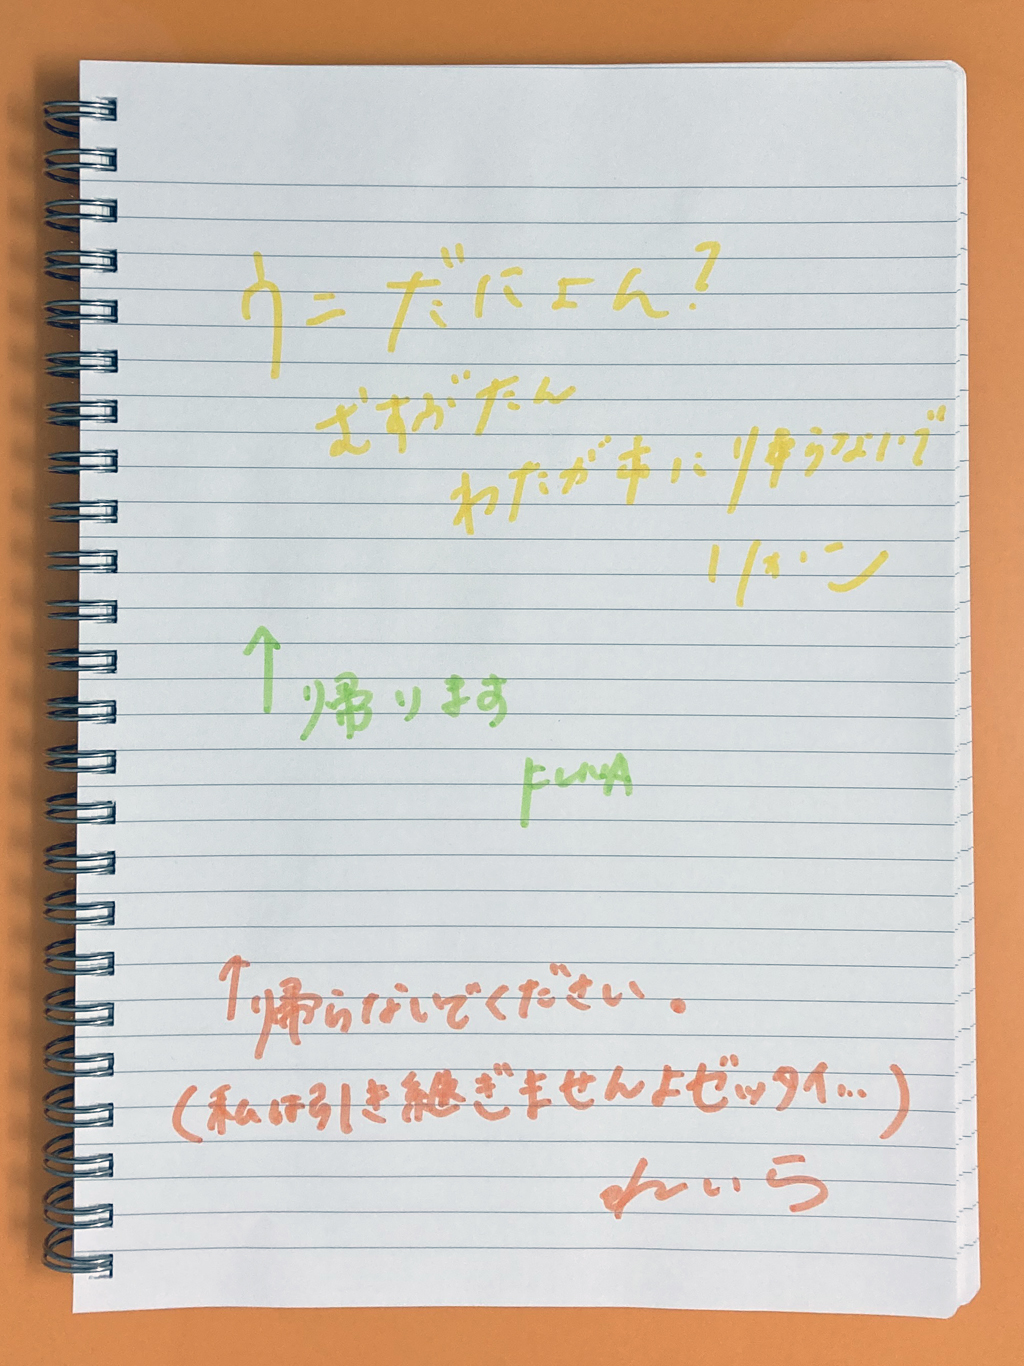 ウニだにょん?
むすぶたん
わたがホに帰らないで
リオン
↑帰ります
↑帰らないでください.
(私は引き継ぎませんよゼッタイ…)
れいら